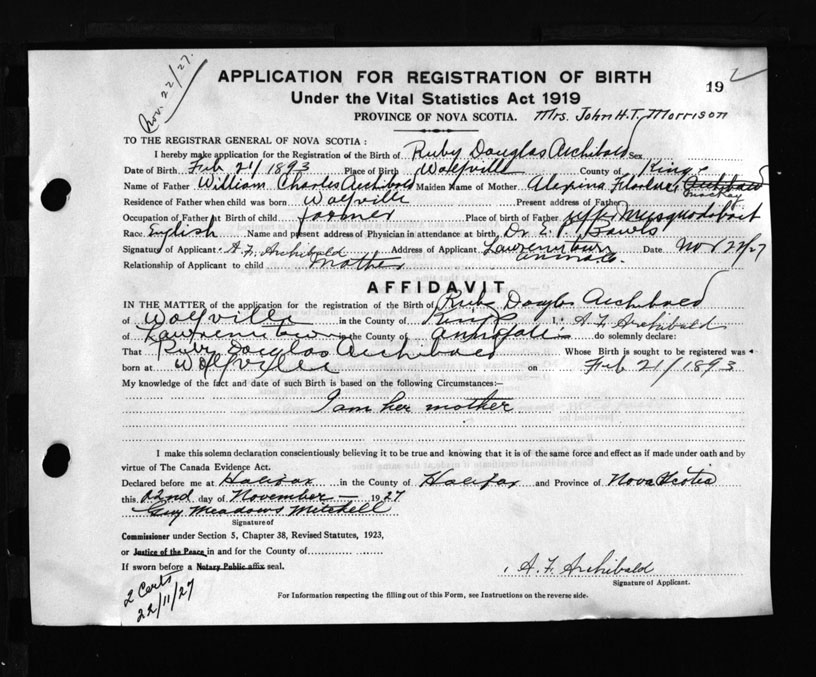 Nov. 22/27.
APPLICATION FOR REGISTRATION OF BIRTH
19
Under the Vital Statistics Act 1919
PROVINCE OF NOVA SCOTIA. Mrs. John H.T. Morrison
TO THE REGISTRAR GENERAL OF NOVA SCOTIA :
I hereby make application for the Registration of the Birth of Ruby Douglas Archibald Sex
Date of Birth Feb 21/1893 Place of Birth Wolfville County of Kings
Name of Father William Charles Archibald Maiden Name of Mother Florence Archibald
Residence of Father when child was born Wolfville Present address of Father
Occupation of Father at Birth of child farmer Place of birth of Father Upper Musquodoboit
Race English Name and present address of Physician in attendance at birth Dr. E. P. Bowls
Signature of Applicant A. F. Archibald Address of Applicant Lawrencetown Date Nov 22/27
Annapolis
Relationship of Applicant to child Mother
AFFIDAVIT
IN THE MATTER of the application for the registration of the Birth of Ruby Douglas Archibald
of Wolfville in the County of Kings I, A F Archibald
of Lawrencetown in the County of Annapolis do solemnly declare:
That Ruby Douglas Archibald Whose Birth is sought to be registered was
born at Wolfville on Feb 21/1893
My knowledge of the fact and date of such Birth is based on the following Circumstances:—
I am her mother
I make this solemn declaration conscientiously believing it to be true and knowing that it is of the same force and effect as if made under oath and by
virtue of The Canada Evidence Act.
Declared before me at Halifax in the County of Halifax and Province of Nova Scotia
this 22nd day of November 1927
Guy Meadows Mitchell
Signature of
Commissioner under Section 5, Chapter 38, Revised Statutes, 1923,
or Justice of the Peace in and for the County of
If sworn before a Notary Public affix seal.
A. F. Archibald
Signature of Applicant.
2 Certs
22/11/27
For Information respecting the filling out of this Form, see Instructions on the reverse side.